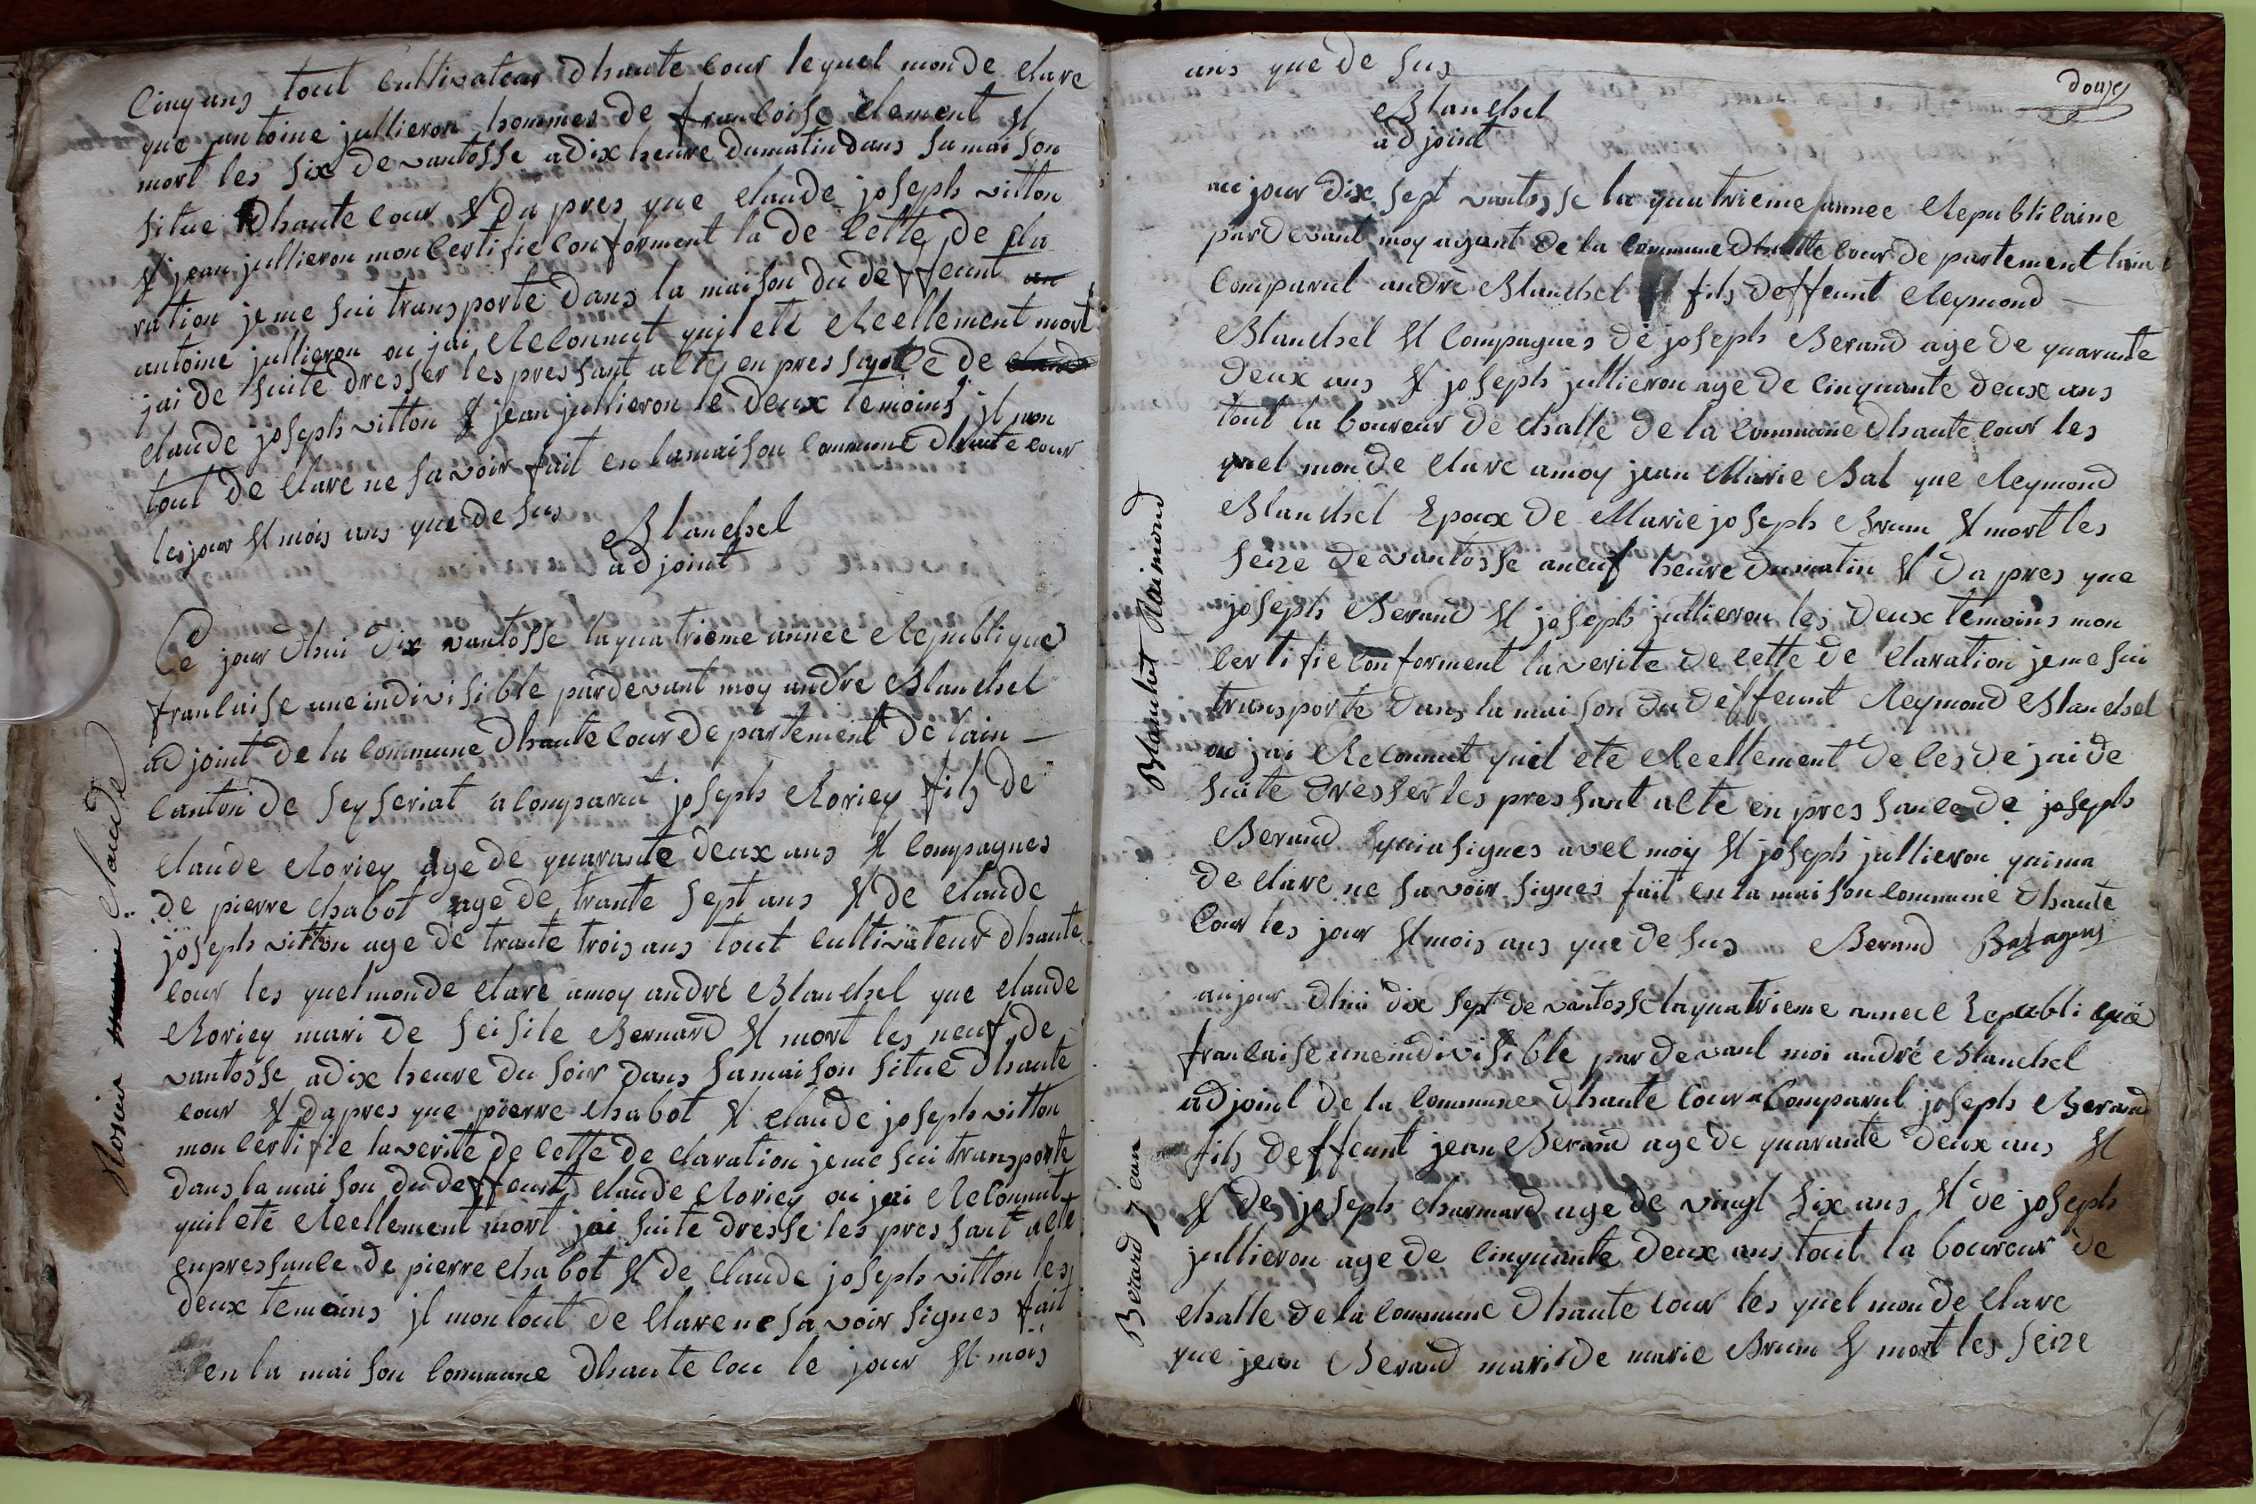 Cinq ans tout cultivateur dhaute cour le quel mon de clare
que antoine jullieron hommes de francoise clement et
mort les six de vantosse a dix heure du matin dans sa mai son
situe dhaute cour et da pres que claude joseph vitton
et jean jullieron mon certifie conforment la de cette de cla
ration je me sui transporte dans la maison du deffeunt
antoine jullieron ou jai Reconnut quil ete Reellement mort
jai de suite dresser les pressant acte en pressance de
claude joseph vitton et jean jullieron le deux temoins jl mon
tout de clare ne savoir fait en la maison commune dhaute cour
les jour et mois ans que de sus
Blanchet
ad joint
Ce jour dhui dix vantosse la quatrieme annee Republique
francaise une indivisible par devant moy andré Blanchet
ad joint de la commune dhaute cour de partement de lain
canton de seyseriat a comparut joseph Roriey fils de
Claude Roriey age de quarante deux ans et compagnes
de pierre chabot age de trante sept ans et de claude
joseph vitton age de trante trois ans tout cultivateur dhaute
cour les quel mon de clare a moy andré Blanchet que claude
Roriey mari de seisile Bernard et mort les neuf de
vantosse a dix heure du soir dans sa maison situe dhaute
cour et dapres que pierre chabot et claude joseph vitton
mon certifie la verite de cette de claration je me sui transporte
dans la maison du deffeunt claude Roriey ou jai Reconnut
quil ete Reellement mort jai suite dresse les pressant acte
en pressance de pierre chabot et de claude joseph vitton les
deux temoins jl mon tout de clare ne savoir signes fait
en la mai son commune dhaute cou le jour et mois
claude
ans que de sus
douze
Blanchet
ad joint
au jour dix sept vantosse la quatrieme annee Republicaine
par devant moy agant de la commune dhaute cour de partement lain
Comparut andrè Blanchet fils deffeunt Reymond
Blanchet et compagnes de joseph Beraud age de quarante
deux ans et joseph jullieron age de cinquante deux ans
tout la boureur de challe de la commune dhaute cour les
quel mon de clare a moy jean Marie Bal que Reymond
Blanchet Epoux de Marie joseph Brun et mort les
seize de vantosse a neuf heure du matin et da pres que
joseph Beraud et joseph jullieron les deux temoins mon
certifie conforment la verite de cette de claration je me sui
transporte dans la mai son du deffeunt Reymond Blanchet
ou jai Reconnut quil ete Reellement de ces de jai de
suite dresser les pressant acte en pressance de joseph
Beraud qui a signes avec moy et joseph jullieron qui ma
de clare ne sa voir signes fait en la mai son commune dhaute
Cour les jour et mois ans que de sus Beraud Bal agent
Blanchet Raimond
au jour dhui dix sept de vantosse la quatrieme annee Republi que
francaise une indivisible par devant moi andré Blanchet
ad joint de la commune dhaute cour a Comparut joseph Beraud
fils deffeunt jean Beraud age de quarante deux ans et
et de joseph charmard age de vingt six ans et de joseph
jullieron age de cinquante deux ans tout la boureur de
challe de la commune dhaute cour les quel mon de clare
que jean Beraud mari de marie Brun et mort les seize
Beraud Jean